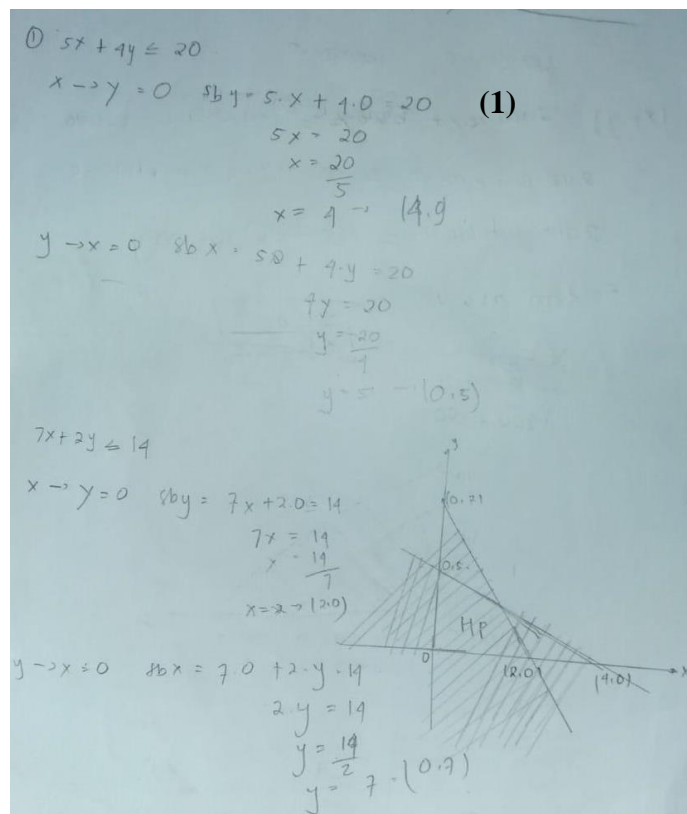 ① 5x + 4y ≤ 20
x → y = 0 sb y = 5.x + 4.0 = 20
(1)
5x = 20
x = 20/5
x = 4 → (4.0)
y → x = 0 sb x = 5.0 + 4.y = 20
4y = 20
y = 20/4
y = 5 → (0.5)
7x + 2y ≤ 14
x → y = 0 sby = 7x + 2.0 = 14
7x = 14
x = 14/7
x = 2 → (2.0)
y → x = 0 sbx = 7.0 + 2.y = 14
2.y = 14
y = 14/2
y = 7 → (0.7)
y
(0.7)
0.5
HP
0
(2.0)
(4.0)
x